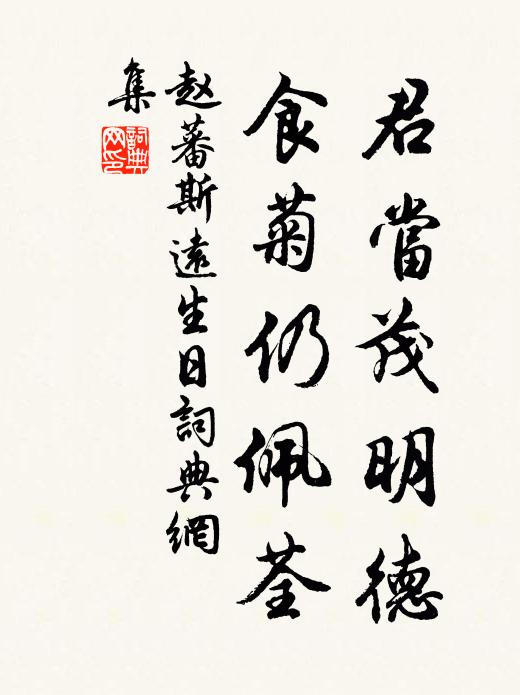 君當茂明德
食菊仍佩荃
赵蕃斯遠生日詞典網
集
詞典網印